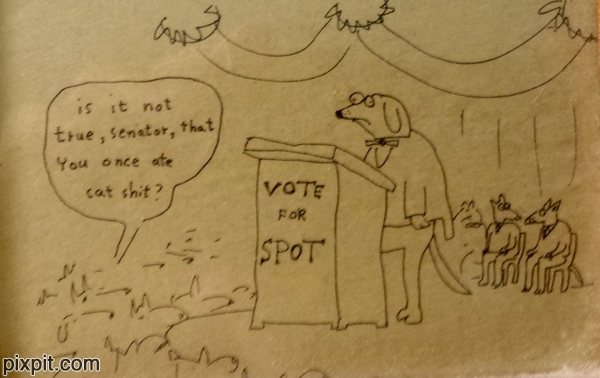 is it not
true, senator, that
You once ate
cat shit?
VOTE
FOR
SPOT
pixpit.com